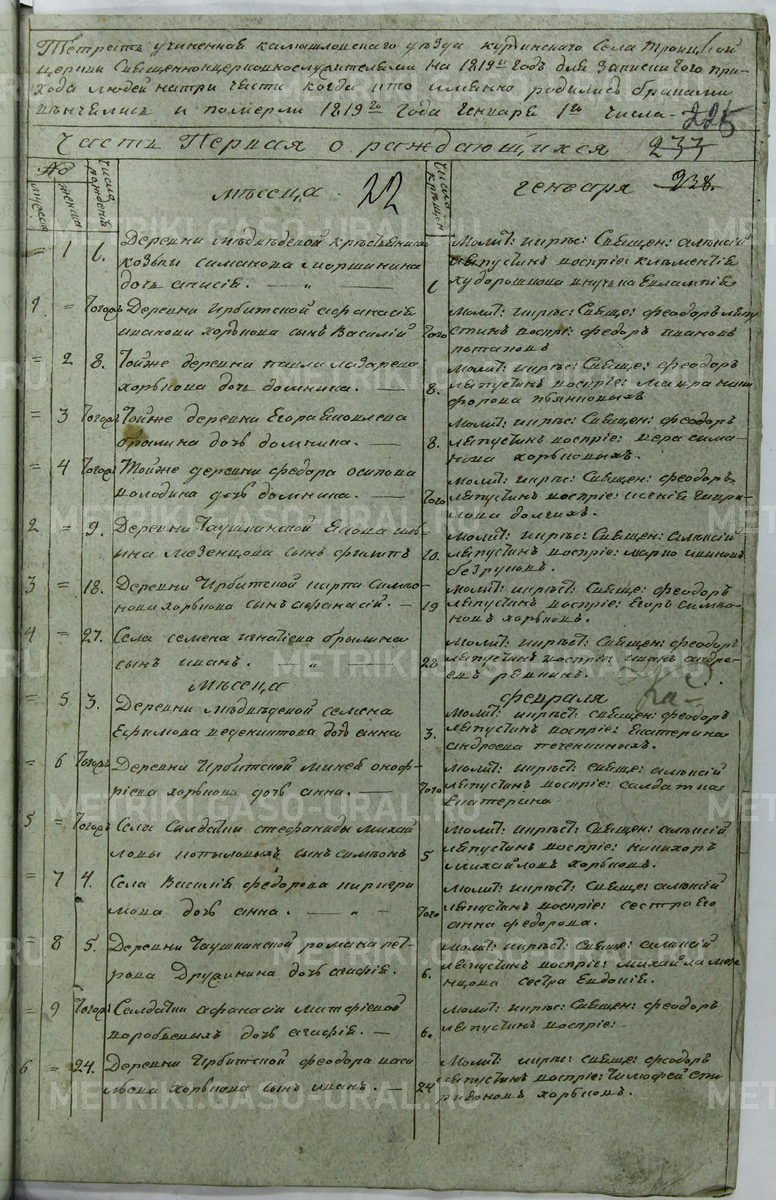 Тетрать учиненная камышловскаго уезда курьинскаго Села троицкой
церкви Священноцерковнослужителями на 1819й годъ для записки того при-
хода людей на три части когда кто именно родились браками
венчались и померли 1819го года Генваря 1го числа.
225
Часть Первая о раждающихся
233
№
мужеска
женска
число рожденія
месеца
22
число крещен
генваря
238.
= 1 1. Деревни медведевой крестьянина
козьмы симанова моршинина
дочь анисія.
Молит: и крес: Священ: алексій
лепустинъ воспріе: климентіе
худорошкова внучька евлампіе
1
1 = Тогожъ Деревни Ирбитской афанасіе
иванова хорькова сынъ Василій
Того
Молит: и крес: Свяще: феодоръ лепу
стинъ воспрі: федоръ ивановъ
потаповъ
= 2 8. Тойже деревни павла лазарева
хорькова дочь домника.
8.
Молит: и крес: Свяще: феодоръ
лепустинъ воспріе: мавра ники
форова пьянковыхъ
= 3 Тогожъ Тойже деревни Егора Яковлева
брылина дочь домника.
8.
Молит: и крес: Священ: феодоръ
лепустинъ воспріе: вера сима-
нова хорьковыхъ.
= 4 Тогожъ Тойже деревни федора осипова
колодина дочь домника.
Того
Молит: и крес: Священ: феодоръ
лепустинъ воспріе: ксеніе гаври-
лова долгихъ.
2 = 9. Деревни Таушканской
мезенцова сынъ филипъ
10
Молит: и крес: Священ: алексій
лепустинъ воспріе: марко ивановъ
безруковъ.
3 = 18. Деревни Ирбитской карпа симео-
нова хорькова сынъ афанасій.
19
Молит: и крест: Свяще: феодоръ
лепустинъ воспріе: Егоръ симео-
новъ хорьковъ.
4 = 27. Села семена игнатіева брылина
сынъ иванъ.
28
Молит: и крест: Священ: феодоръ
лепустинъ воспріе: иванъ андре-
евъ
месеца
февраля
= 5 3. Деревни медведевой семена
Ефимова ведениктова дочь анна
3.
Молит: и крест: Священ: феодоръ
лепустинъ воспріе: Екатерина
андреева
= 6 Тогожъ Деревни Ирбитской минеа оноф-
ріева хорькова дочь анна.
Того
Молит: и крест: Свяще: алексій
лепустинъ воспріе: солдатка
Екатерина
5 = Тогожъ Села Солдатки стефаниды михай
ловы копыловыхъ сынъ симеонъ
5
Молит: и крест: Священ: алексій
лепустинъ воспріе: никифоръ
михайловъ хорьковъ.
= 7 4. Села Василіе федорова
дочь анна.
Того
Молит: и крест: Священ: алексій
лепустинъ воспріе: сестра его
анна федорова.
= 8 5. Деревни Таушканской романа пет-
рова Дружинина дочь агафіе.
6.
Молит: и крест: Свяще: алексій
лепустинъ воспріе: михайла мезе
нцова сестра Евдокіе.
= 9 Тогожъ Солдатки афанасіи матфіевой
воробьевыхъ дочь агафіе.
6.
Молит: и крес: Священ: феодоръ
лепустинъ воспріе:
6 = 24. Деревни Ирбитской феодора васи
льева хорькова сынъ иванъ.
24
Молит: и крес: свяще: феодоръ
лепустинъ воспріе: тимофей спи-
ридоновъ хорьковъ.
METRIKI.GASO-URAL.RU